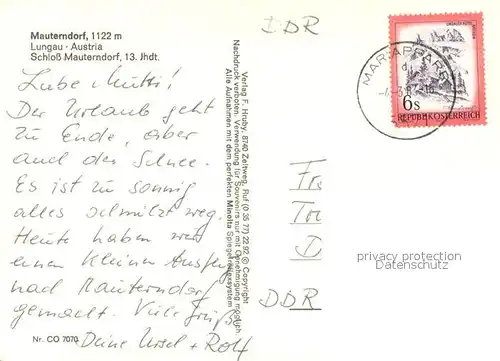 Mauterndorf, 1122 m
Lungau · Austria
Schloß Mauterndorf, 13. Jhdt.
Liebe Mutti!
Der Urlaub geht
zu Ende, aber
auch der Schnee.
Es ist zu sonnig
alles schmilzt weg.
Heute haben wir
einen kleinen Ausflug
nach Mauterndorf
gemacht. Viele Grüße
Deine Ursel + Rolf
Nr. CO 7070
Verlag F. Hruby, 8740 Zeltweg, Ruf (0 35 77) 22 92 © Copyright
Nachdruck verboten. Verwendung für Souvenirs nur mit Genehmigung möglich.
Alle Aufnahmen mit dem perfekten Minolta Spiegelreflexsystem
DDR
MARIAPFARR
6s
REPUBLIK ÖSTERREICH
Fr
D
DDR
privacy protection
Datenschutz